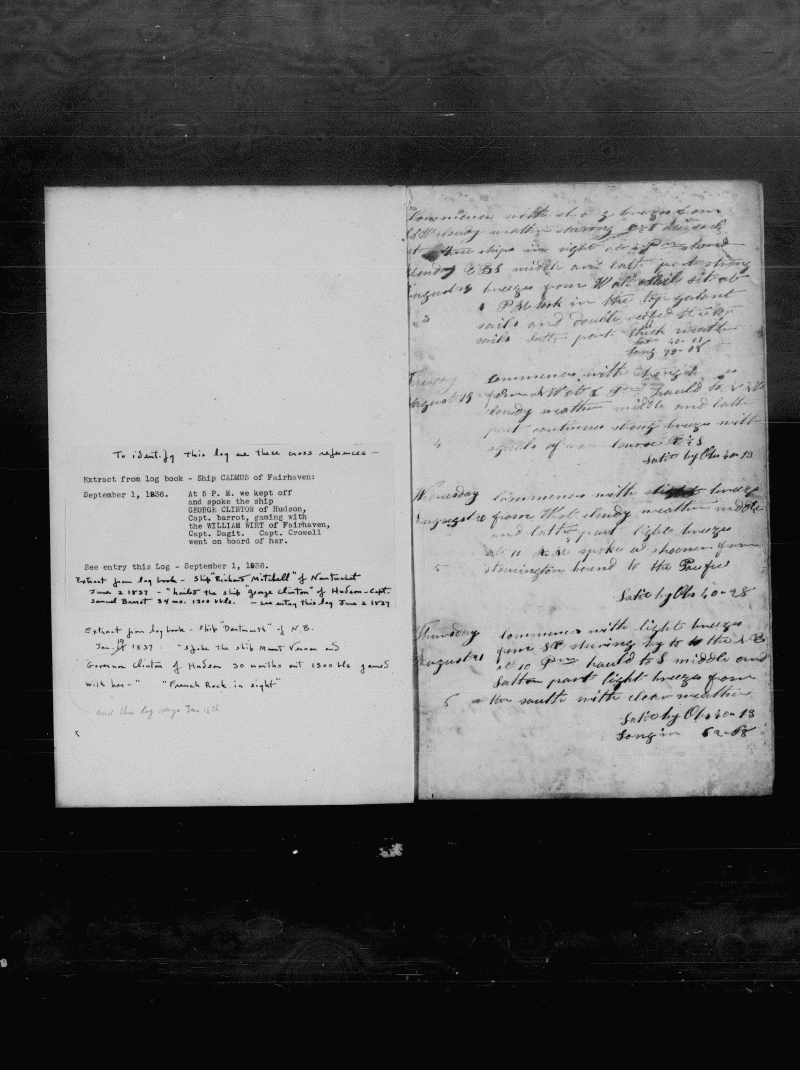 To identify this log are these cross references —
Extract from log book - Ship CADMUS of Fairhaven:
September 1, 1836. At 5 P. M. we kept off
and spoke the ship
GEORGE CLINTON of Hudson,
Capt. barrot, gaming with
the WILLIAM WIRT of Fairhaven,
Capt. Dagit. Capt. Crowell
went on board of her.
See entry this Log - September 1, 1836.
Extract from log book - Ship "Richard Mitchell" of Nantucket
June 2 1837 - "hailed the ship george clinton" of Hudson - Capt.
Samuel Barrot 34 mo. 1300 bbls. - see entry this log June 2 1837
Extract from log book - Ship "Dartmouth" of N.B.
Jan. 19 1837. "Spoke the ship Mount Vernon and
Governor Clinton of Hudson 30 months out 1300 bbls gamed
with her -" "French Rock in sight"
and this log says Jan 18th
Commences with strong breezes from
cloudy weather staring
three ships in sight at
Monday middle and latter part strong
August 18 breezes from W all sail set at
3 1 PM took in the top galent
sails and double reefed
sails latter part thick weather
Long
Tuesday commences with
August 19 from hauld to
cloudy weather middle and latter
part continues strong breezes with
4 squals of course
Latt by Obs 40-13
Wednesday commences with light breeze
August 20 from West cloudy weather middle
and latter part light breezes
at 11 AM spoke a shoener from
5 stonington bound to the Pacific
Latt by Obs 40-28
Thursday commences with light breezes
August 21 from SE stearing by to to the NE
at 10 PM hauld to S middle and
Latter part light breezes from
6 the south with clear weather
Latt by Obs 40-13
Long in 62-08